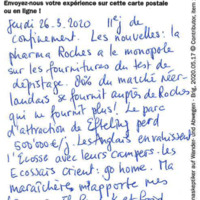 Envoyez-nous votre expérience sur cette carte postale
ou en ligne !
Jeudi 26.3.2020 11ej de
confinement. Les nouvelles: la
pharma Roches a le monopole
sur les fournitures du test de
dépistage. 80% du marché néer-
landais se fournit auprès de Roches
qui ne fournit plus! Le parc
d'attraction de Efteling perd
500'000€/j. Les anglais envahissent
l'Écosse avec leurs campers. les
Ecossais crient: go home. Ma
maraîchère m'apporte mes